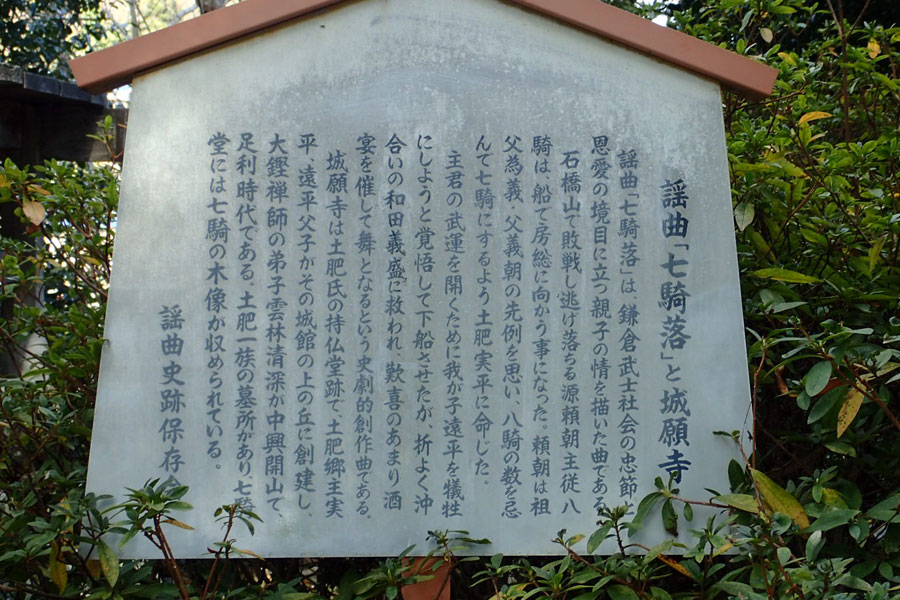 謡曲「七騎落」と城願寺
謡曲「七騎落」は、鎌倉武士社会の忠節と
恩愛の境目に立つ親子の情を描いた曲である。
石橋山で敗戦し逃げ落ちる源頼朝主従八
騎は、船で房総に向かう事になった。頼朝は祖
父為義、父義朝の先例を思い、八騎の数を忌
んで七騎にするよう土肥実平に命じた。
主君の武運を開くために我が子遠平を犠牲
にしようと覚悟して下船させたが、折よく沖
合いの和田義盛に救われ、歓喜のあまり酒
宴を催して舞となるという史劇的創作曲である。
城願寺は土肥氏の持仏堂跡で、土肥郷主実
平、遠平父子がその城館の上の丘に創建し、
大鑑禅師の弟子雲林清深が中興開山で
足利時代である。土肥一族の墓所があり七騎
堂には七騎の木像が収められている。
謡曲史跡保存会